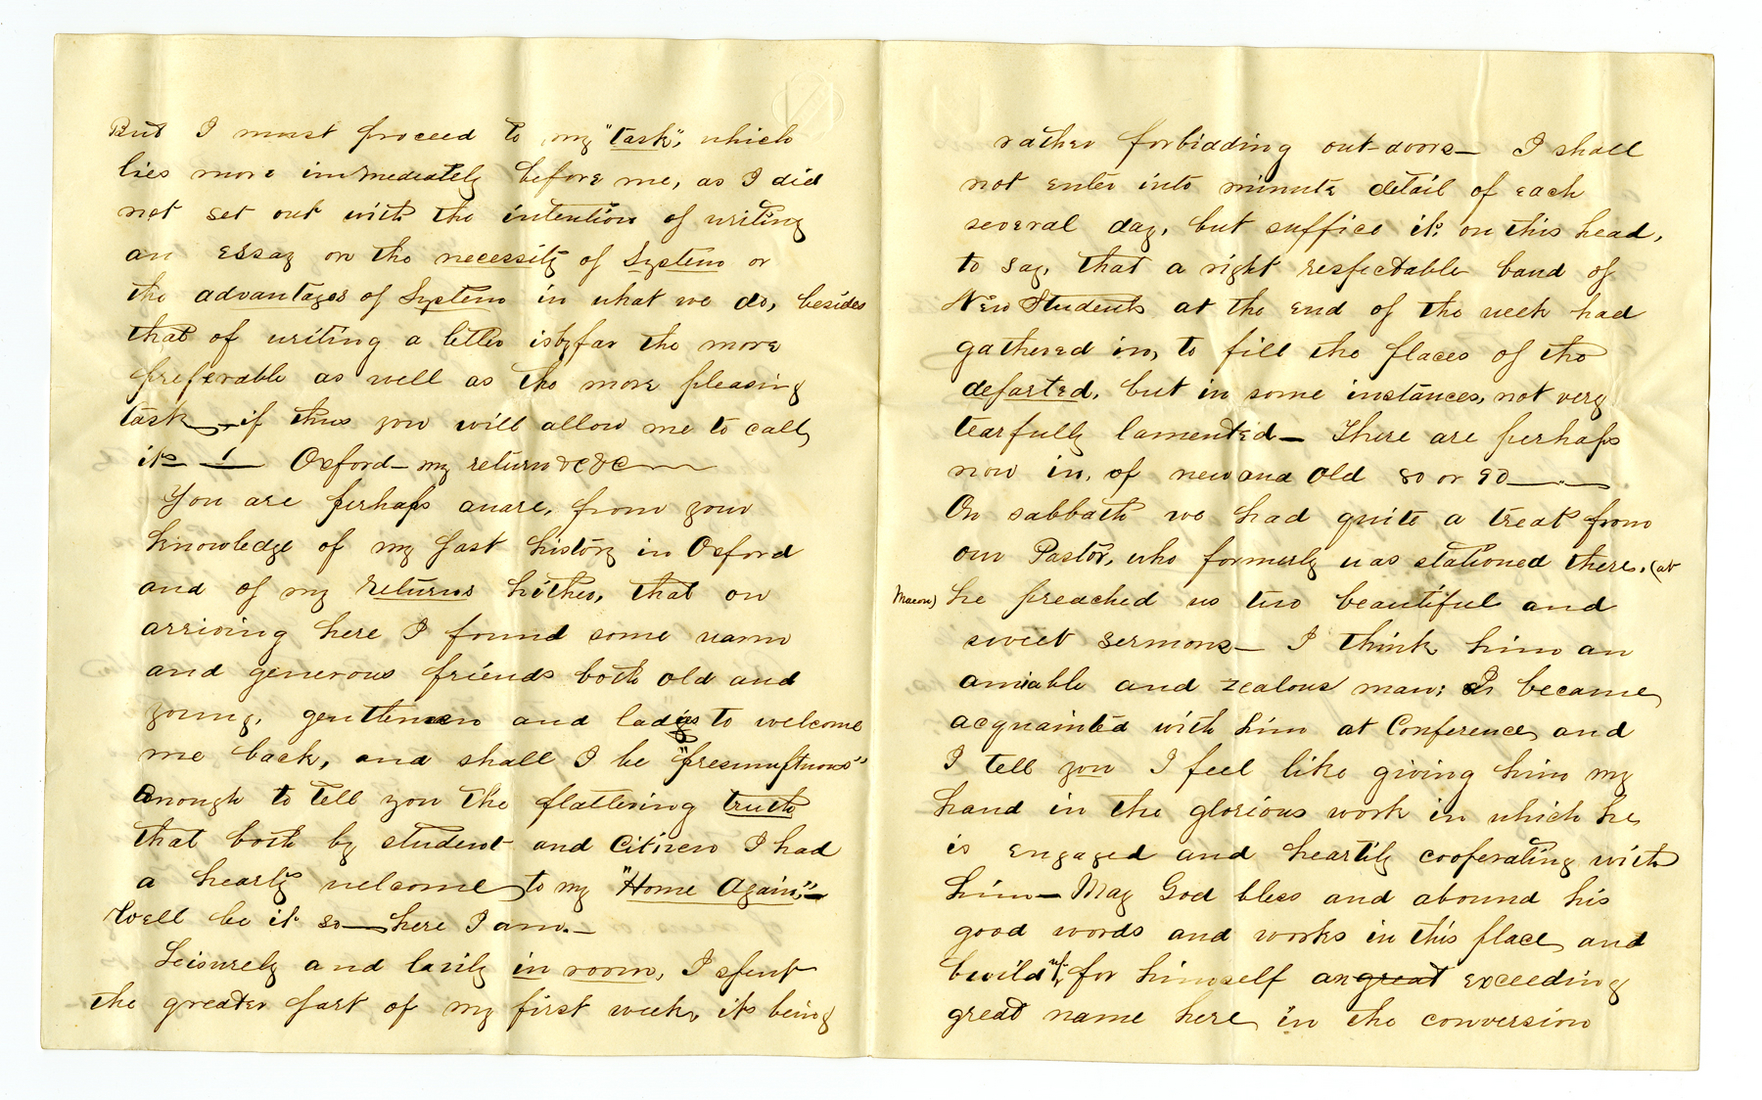 But I must proceed to my "task", which
lies more immediately before me, as I did
not set out with the intention of writing
an essay on the necessity of System or
the advantages of System in what we do, besides
that of writing a letter is by far the more
preferable as well as the more pleasing
task — if thus you will allow me to call
it — — Oxford — my return &c &c
You are perhaps aware, from your
knowledge of my past history in Oxford
and of my returns hither, that on
arriving here I found some warm
and generous friends both old and
young, gentlemen and ladies to welcome
me back, and shall I be "presumptuous"
enough to tell you the flattering truth
that both by student and Citizen I had
a hearty welcome to my "Home Again," —
Well be it so — here I am. —
Leisurely and lazily in room, I spent
the greater part of my first week, it being
rather forbidding out-doors — I shall
not enter into minute detail of each
several day, but suffice it, on this head,
to say, that a right respectable band of
New Students at the end of the week had
gathered in, to fill the places of the
departed, but in some instances, not very
tearfully lamented — There are perhaps
now in, of new and Old 80 or 90 —
On sabbath we had quite a treat from
our Pastor, who formerly was stationed there, (at
Macon) he preached us two beautiful and
sweet sermons — I think him an
amiable and zealous man; I became
acquainted with him at Conference, and
I tell you I feel like giving him my
hand in the glorious work in which he
is engaged and heartily cooperating with
him — May God bless and abound his
good words and works in this place, and
build up for himself an great exceeding
great name here in the conversion